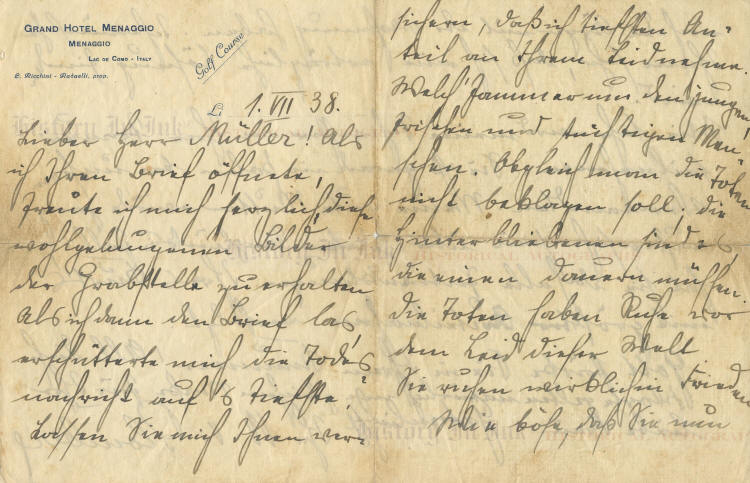 GRAND HOTEL MENAGGIO
MENAGGIO
LAC DE COMO - ITALY
Golf Course
1. VII 38.
Lieber Herr Müller! Als
ich Ihren Brief öffnete,
freute ich mich herzlich, diese
wohlgelungenen Bilder
der Grabstelle zu erhalten
Als ich dann den Brief las,
erschütterte mich die Todes
nachricht auf's tiefste.
Lassen Sie mich Ihnen ver-
sichern, daß ich tiefsten An-
teil an Ihrem Leid nehme.
Welch' Jammer um den jungen,
frischen und tüchtigen Men-
schen. Obgleich man die Toten
nicht beklagen soll; die
Hinterbliebenen sind es,
die einen dauern müssen.
Die Toten haben Ruhe vor
dem Leid dieser Welt
Sie ruhen wirklich in Frieden
Wie böse, das Sie nun